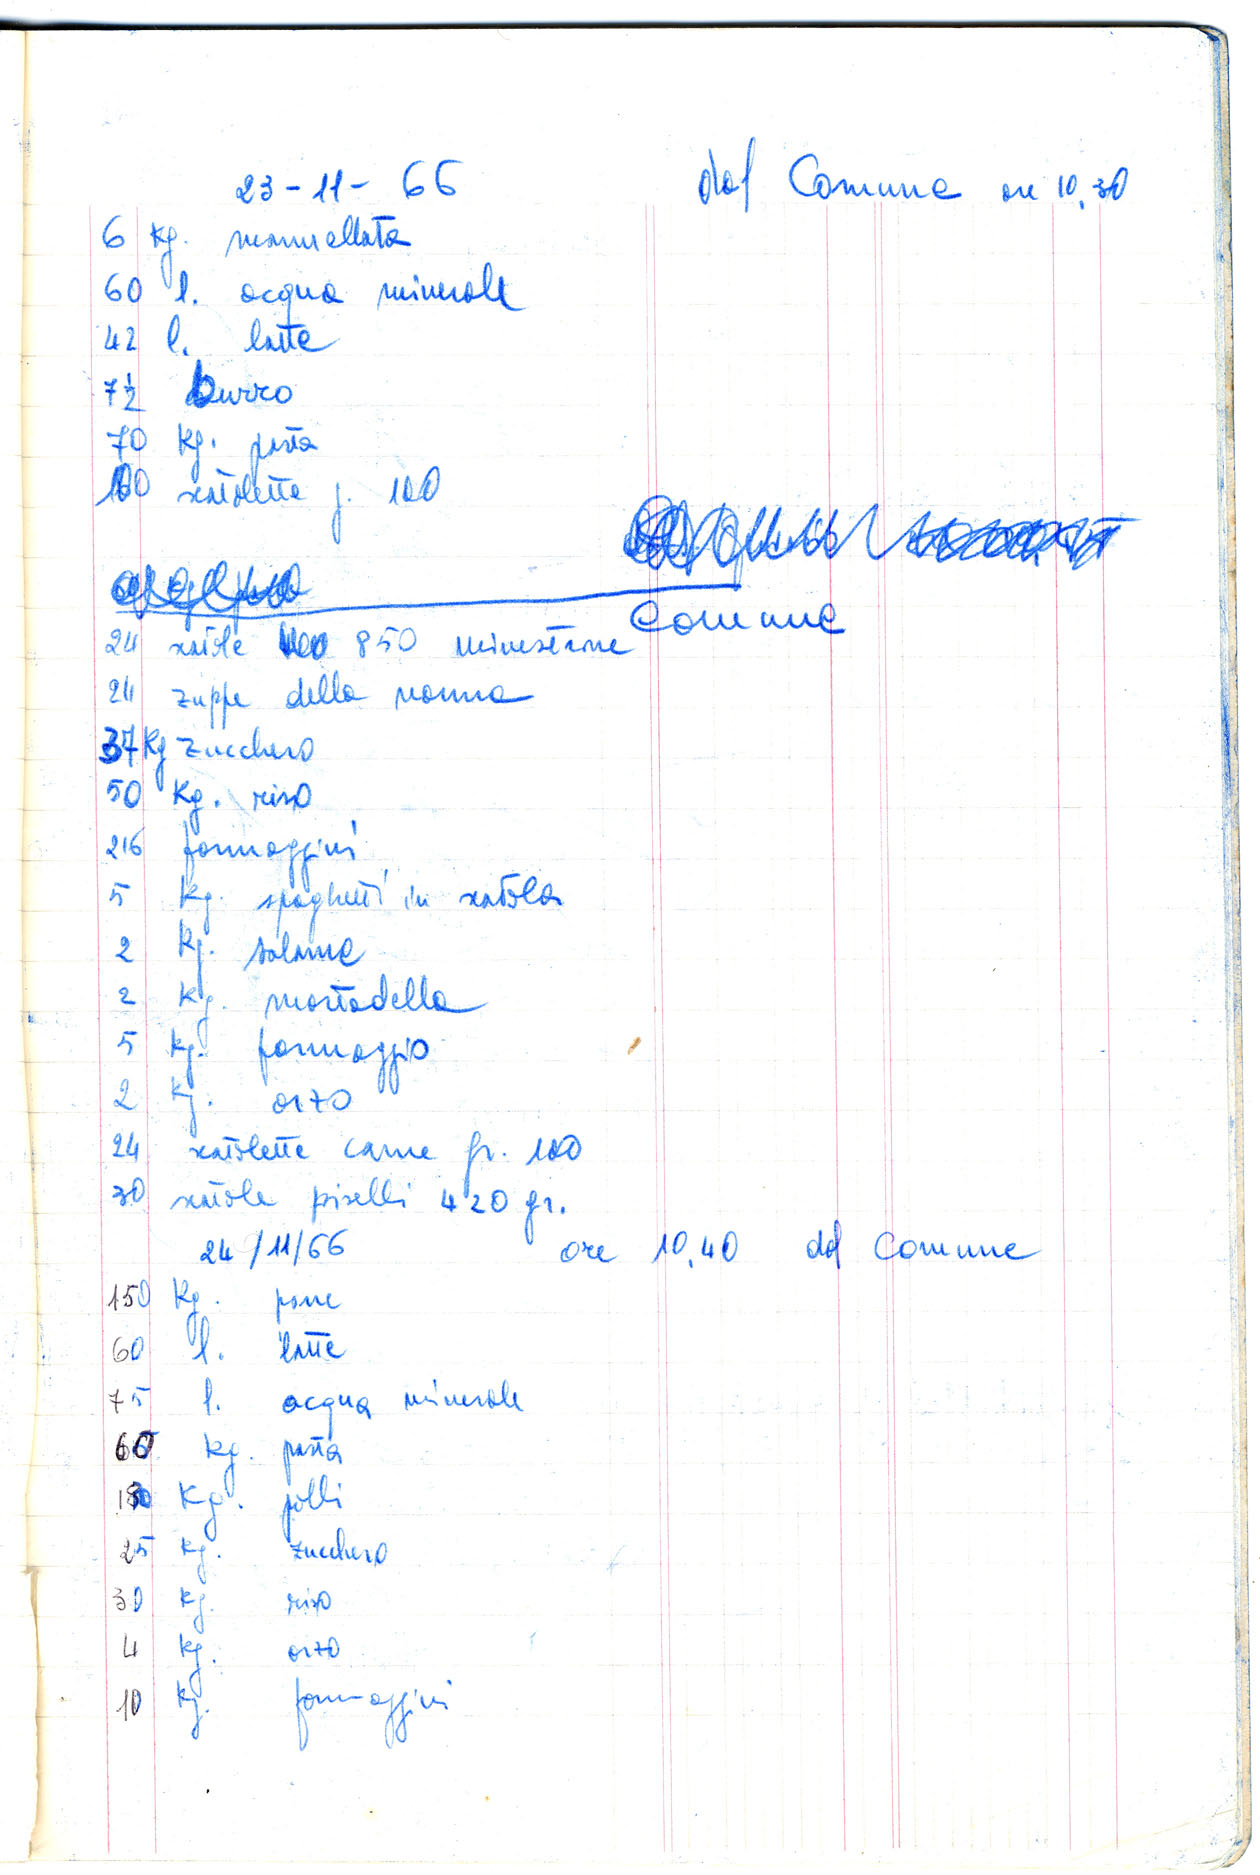 23-11-66 dal Comune ore 10,30
6 Kg. marmellata
60 l. acqua minerale
42 l. latte
7½ burro
70 Kg. pasta
scatolette g. 100
Comune
24 scatole 850 minestrone
24 zuppe della nonna
37 Kg zucchero
50 Kg. riso
216 formaggini
5 Kg. spaghetti in scatola
2 Kg. salame
2 Kg. mortadella
5 Kg. formaggio
2 Kg. orzo
24 scatolette carne gr. 100
30 scatole piselli 420 gr.
24/11/66 ore 10,40 dal Comune
150 Kg. pane
60 l. latte
75 l. acqua minerale
Kg. pasta
Kg. polli
25 Kg. zucchero
30 Kg. riso
4 Kg. orzo
10 Kg. formaggini